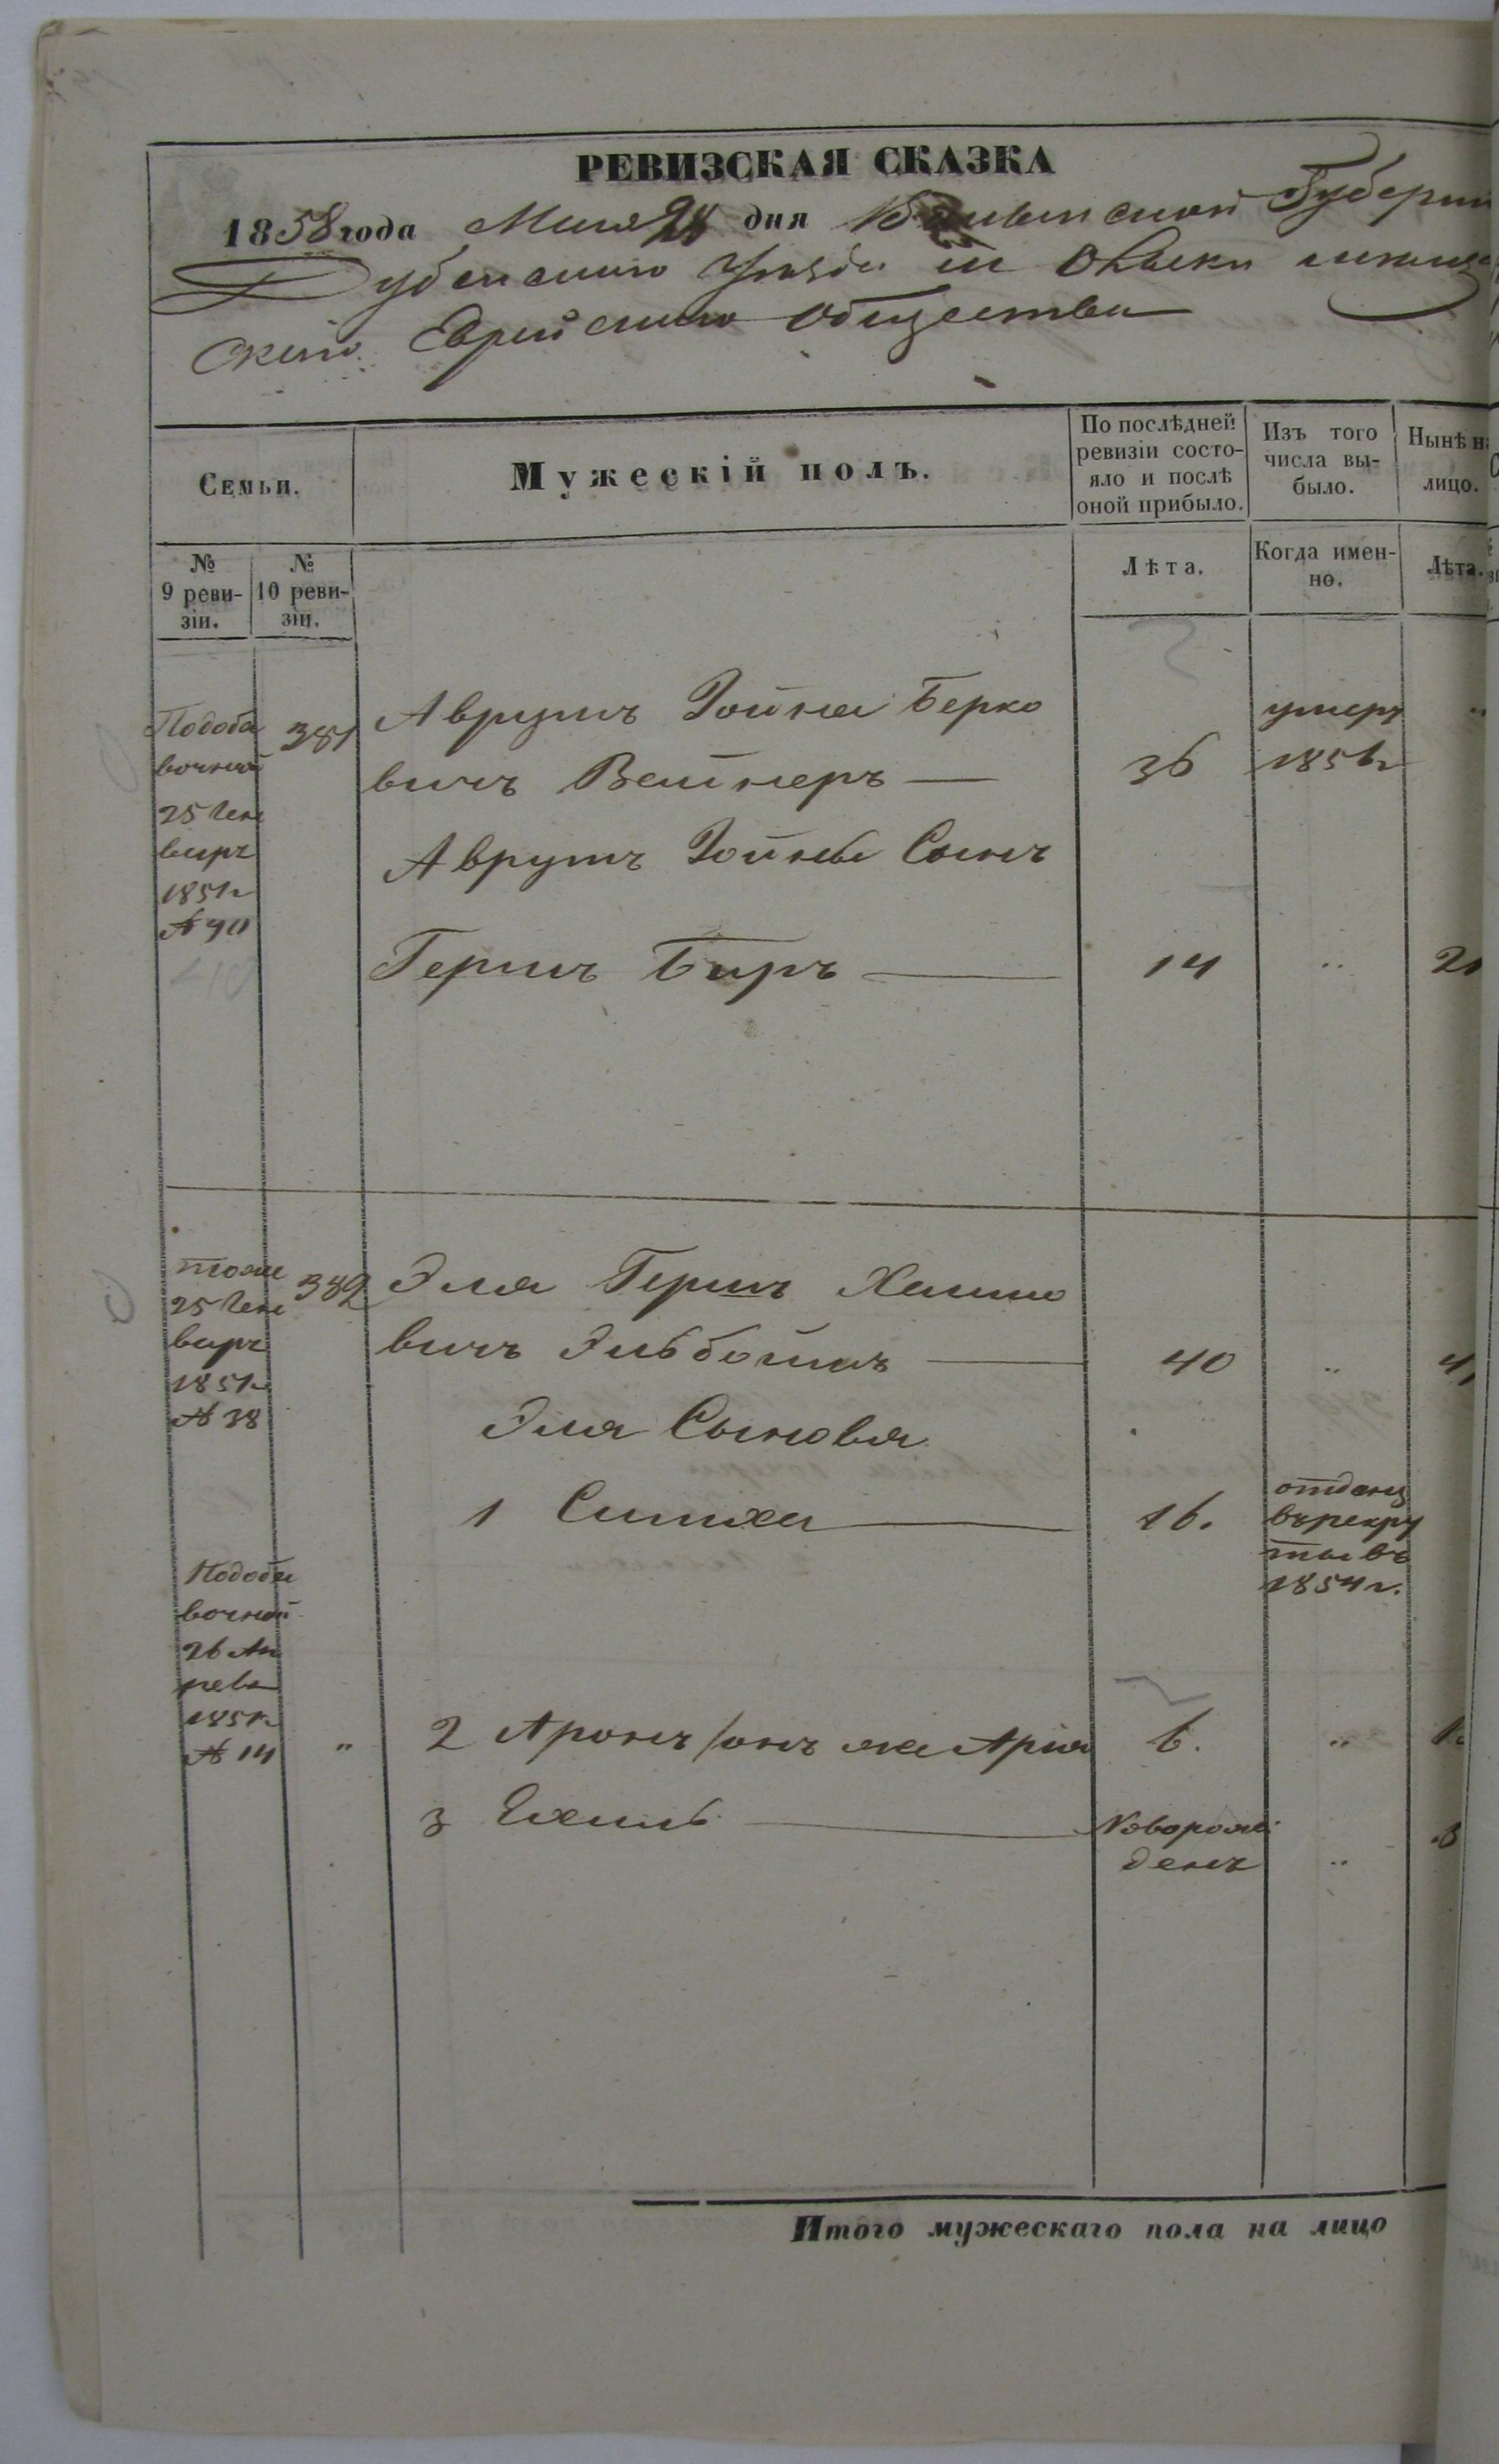 РЕВИЗСКАЯ СКАЗКА
1858 года Мая 28 дня Волынской Губерніи
Дубенскаго Уѣзда м Олыки мѣщан
скаго Еврейскаго Общества
Семьи.
Мужескій полъ.
По послѣдней
ревизіи состо-
яло и послѣ
оной прибыло.
Изъ того
числа вы-
было.
Нынѣ на
лицо.
№
9 реви-
зіи.
№
10 реви-
зіи.
Лѣта.
Когда имен-
но.
Лѣта.
Подоба
вочной
25 Ген
варя
1851г
№ 40
381
Аврумъ Іойна Берко
вичъ Вейнеръ
36
умеръ
1856г
Аврумъ Іойны Сынъ
Гершъ Беръ
14
21
тоже
25 Ген
варя
1851г
№ 38
382
Эля Гершъ Хаимо
вичъ
40
Эля Сыновья
1 Симха
16.
отданъ
въ рекру
ты въ
1854 г.
Подоба
вочной
26 Ап
реля
1851г
№ 14
"
2 Аронъ /онъ же Арія
6.
3 Ехиль
Новорож
денъ
Итого мужескаго пола на лицо